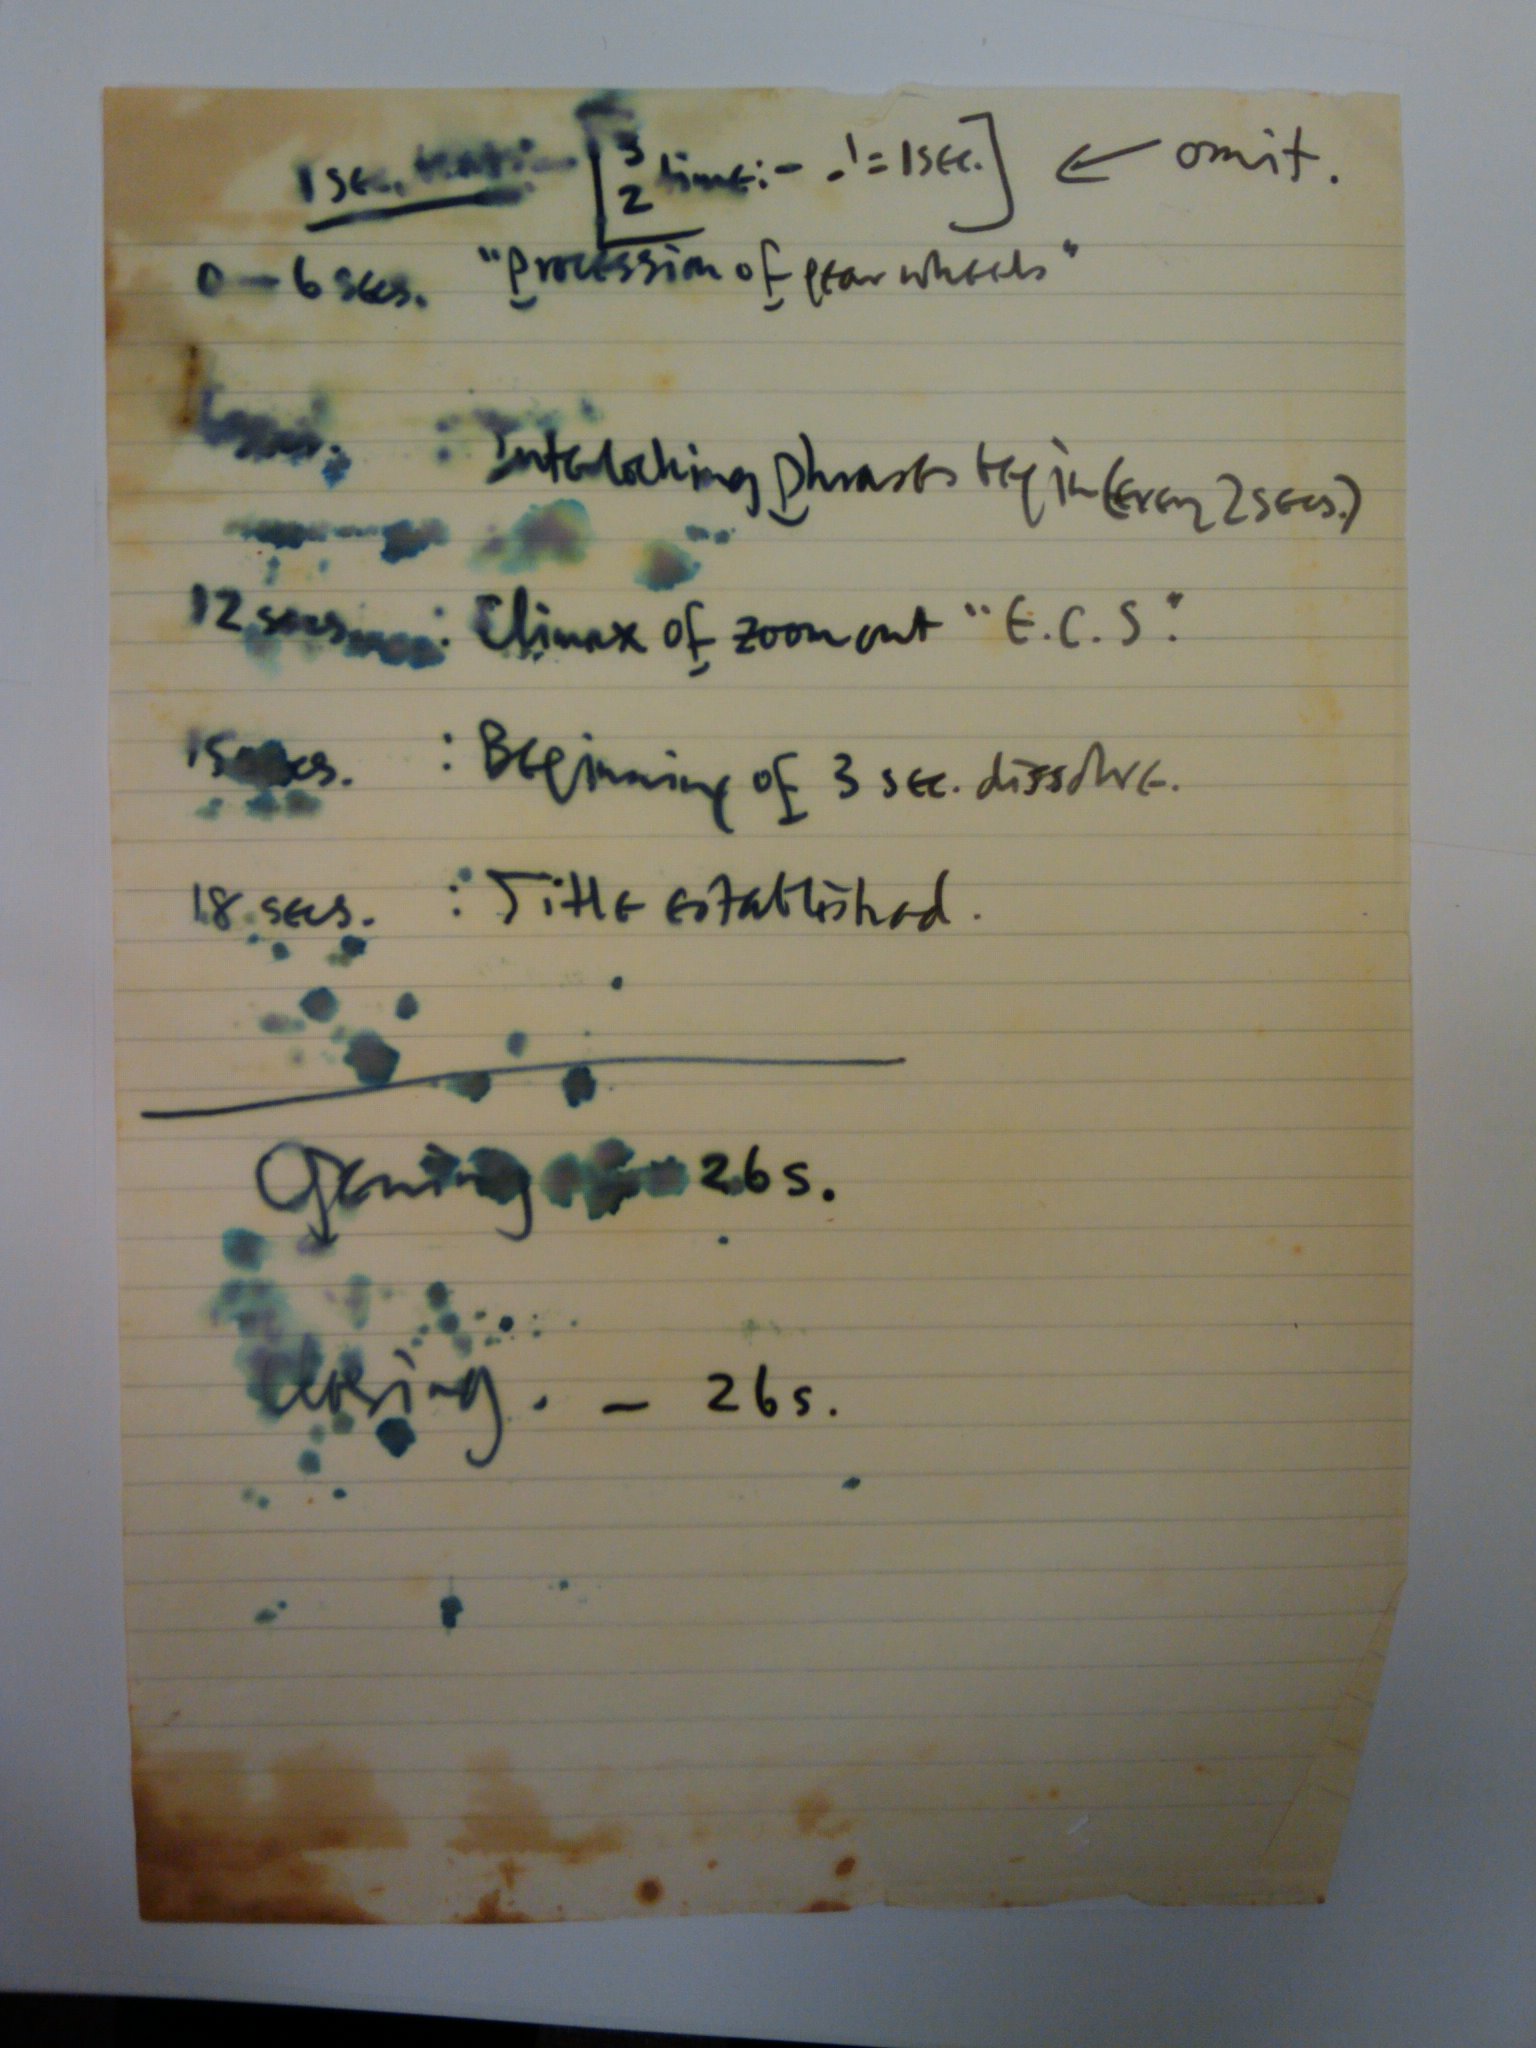 1 sec. [3/2 time:- .' = 1 sec.] ← omit.
0 – 6 secs. "Procession of gear wheels"
secs. : Interlocking phrases begin (every 2 secs.)
12 secs : Climax of zoom out "E.C.S".
15 secs. : Beginning of 3 sec. dissolve.
18 secs. : Title established.
Opening 26s.
Closing. – 26s.